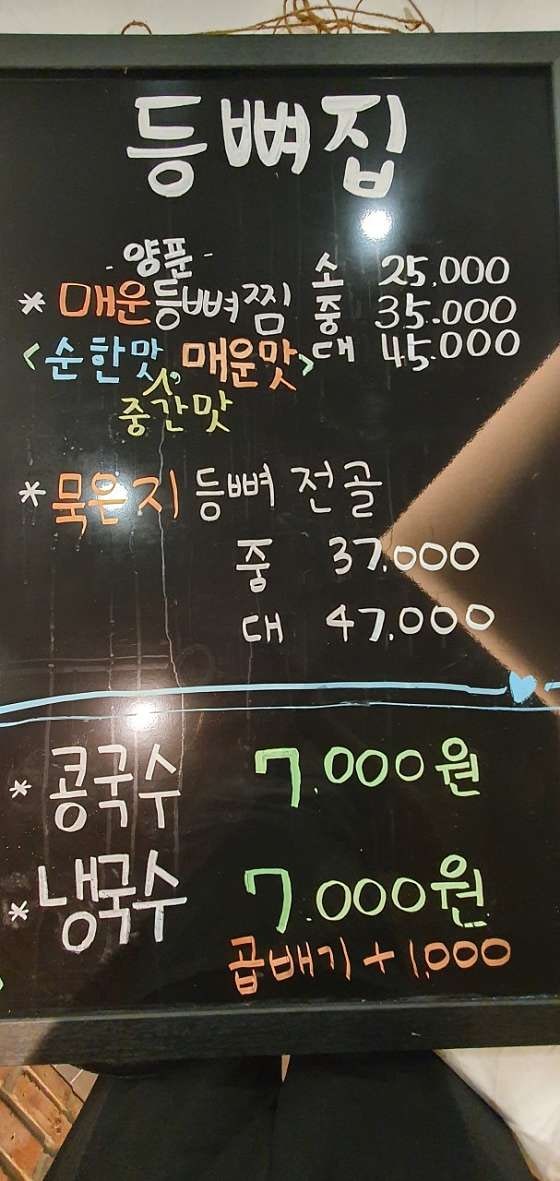 등뼈집
- 양푼 -
* 매운등뼈찜 소 25.000
중 35.000
<순한맛, 매운맛> 대 45.000
중간맛
* 묵은지 등뼈 전골
중 37.000
대 47.000
* 콩국수 7.000원
* 냉국수 7.000원
곱배기 + 1.000